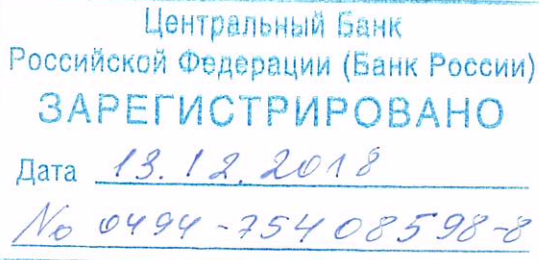 Центральный Банк
Российской Федерации (Банк России)
ЗАРЕГИСТРИРОВАНО
Дата 13.12.2018
№ 0494-75408598-8